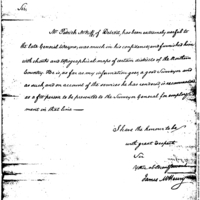 Sir
Mr Patrick McNiff, of Detroit, has been extremely useful to
the late General Wayne, was much in his confidence, and furnished him
with charts and topographical maps of certain districts of the Northern
Country. He is, as far as my information goes, a good Surveyor and
as such, and on account of the services he has rendered, is recommended
as a fit person to be presented to the Surveyor General for employ-
ment in that line
I have the honour to be
with great respect
Sir
James McHenry